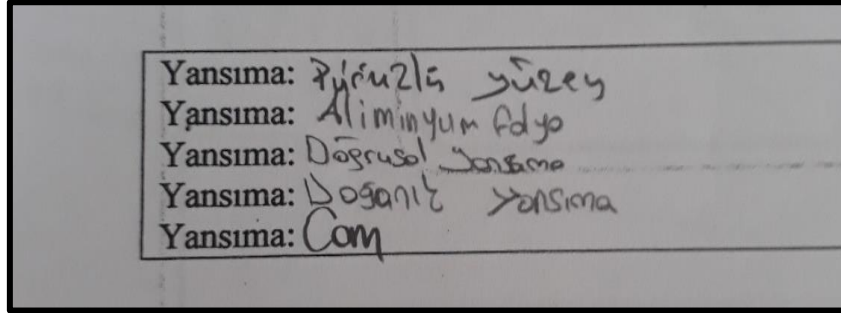 Yansıma: Pürüzlü yüzey
Yansıma: Aliminyum folyo
Yansıma: Doğrusal yansıma
Yansıma: Doğanık yansıma
Yansıma: Com